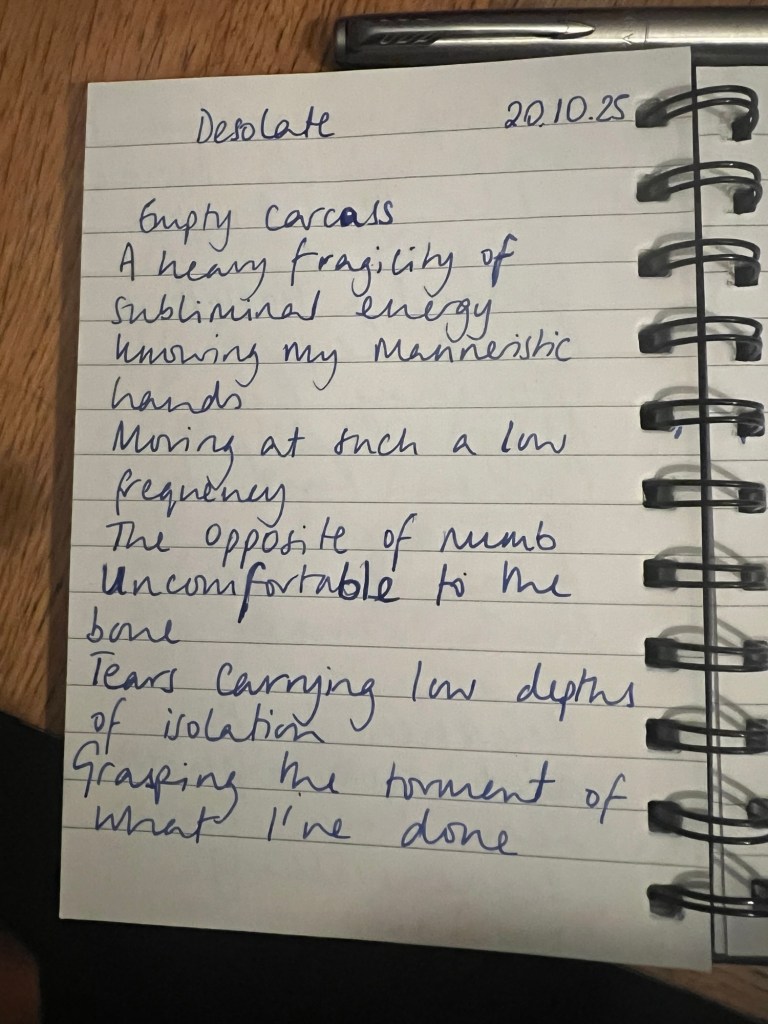 Desolate 20.10.25
Empty carcass
A heavy fragility of
subliminal energy
knowing my manneristic
hands
Moving at such a low
frequency
The opposite of numb
Uncomfortable to the
bone
Tears carrying low depths
of isolation
Grasping the torment of
what I've done